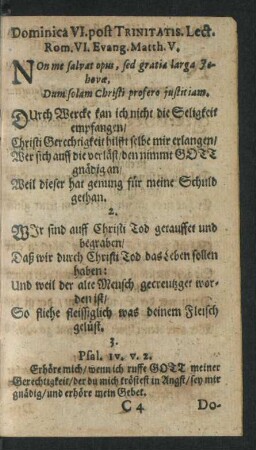 Dominica VI. post TRINITATIS. Lect.
Rom. VI. Evang. Matth. V.
NOn me salvat opus, sed gratia larga Je-
hovæ,
Dum solam Christi profero justitiam.
DUrch Wercke kan ich nicht die Seligkeit
empfangen/
Christi Gerechtigkeit hilfft selbe mir erlangen/
Wer sich auff die verläst/den nimmt GOTT
gnädig an/
Weil dieser hat genung für meine Schuld
gethan.
2.
WIr sind auff Christi Tod getauffet und
begraben/
Daß wir durch Christi Tod das Leben sollen
haben:
Und weil der alte Mensch gecreutzget wor-
den ist/
So fliehe fleissiglich was deinem Fleisch
gelüst.
3.
Psal. IV. v. 2.
Erhöre mich/wenn ich ruffe GOTT meiner
Gerechtigkeit/der du mich tröstest in Angst/sey mir
gnädig/und erhöre mein Gebet.
C 4 Do-